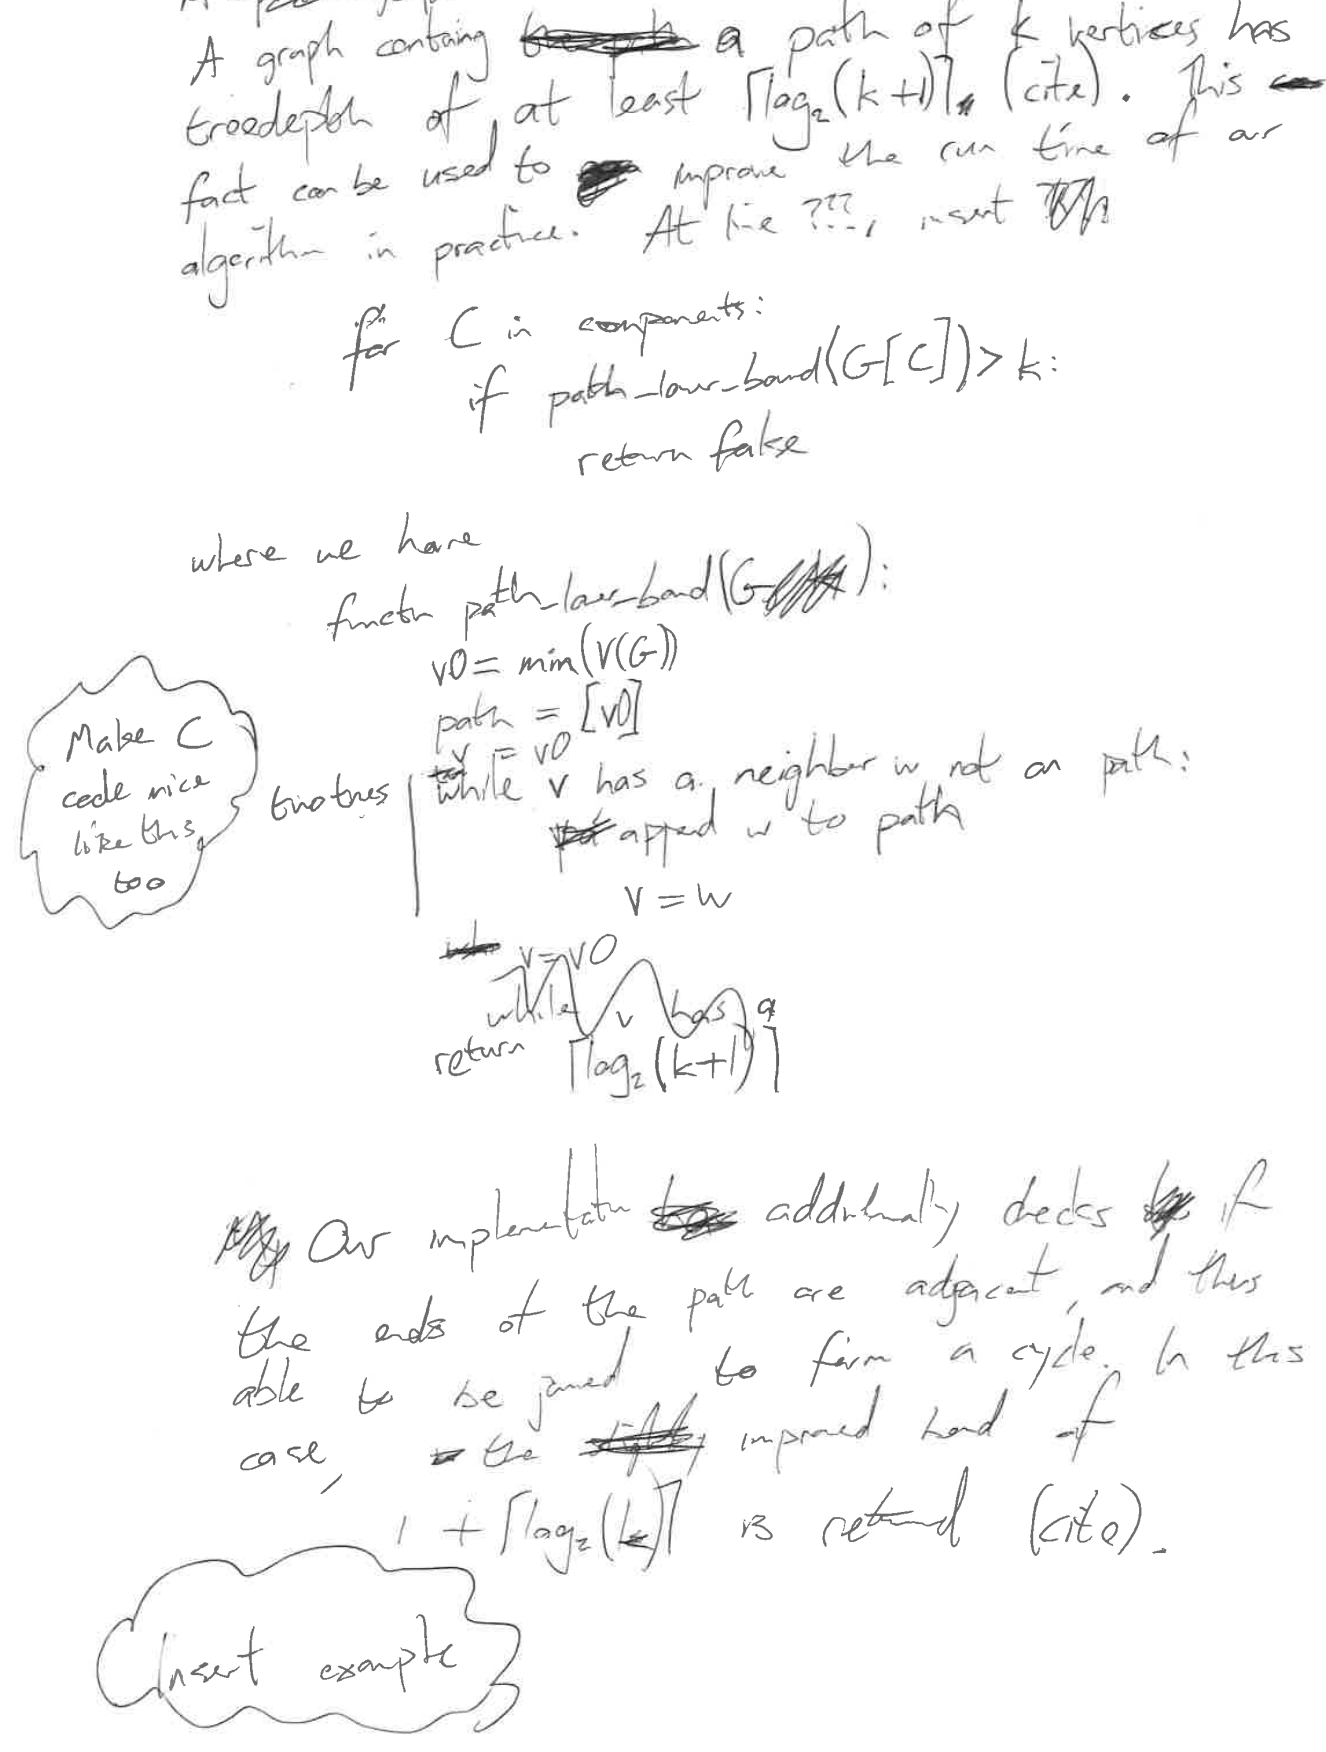 A graph containg a path of k vertices has
treedepth of at least ⌈log₂(k+1)⌉. (cite). This
fact can be used to improve the run time of our
algorithm in practice. At line ???, insert
for C in components:
if path_lower_bound(G[C]) > k:
return false
where we have
function path_lower_bound(G):
v0 = min(V(G))
path = [v0]
v = v0
while v has a neighbor w not on path:
append w to path
v = w
two times
Make C
code nice
like this,
too
v = v0
while v has a
return ⌈log₂(k+1)⌉
Our implementation additionally checks if
the ends of the path are adjacent, and thus
able to be joined to form a cycle. In this
case, the improved bound of
1 + ⌈log₂(k)⌉ is returned (cite).
Insert example